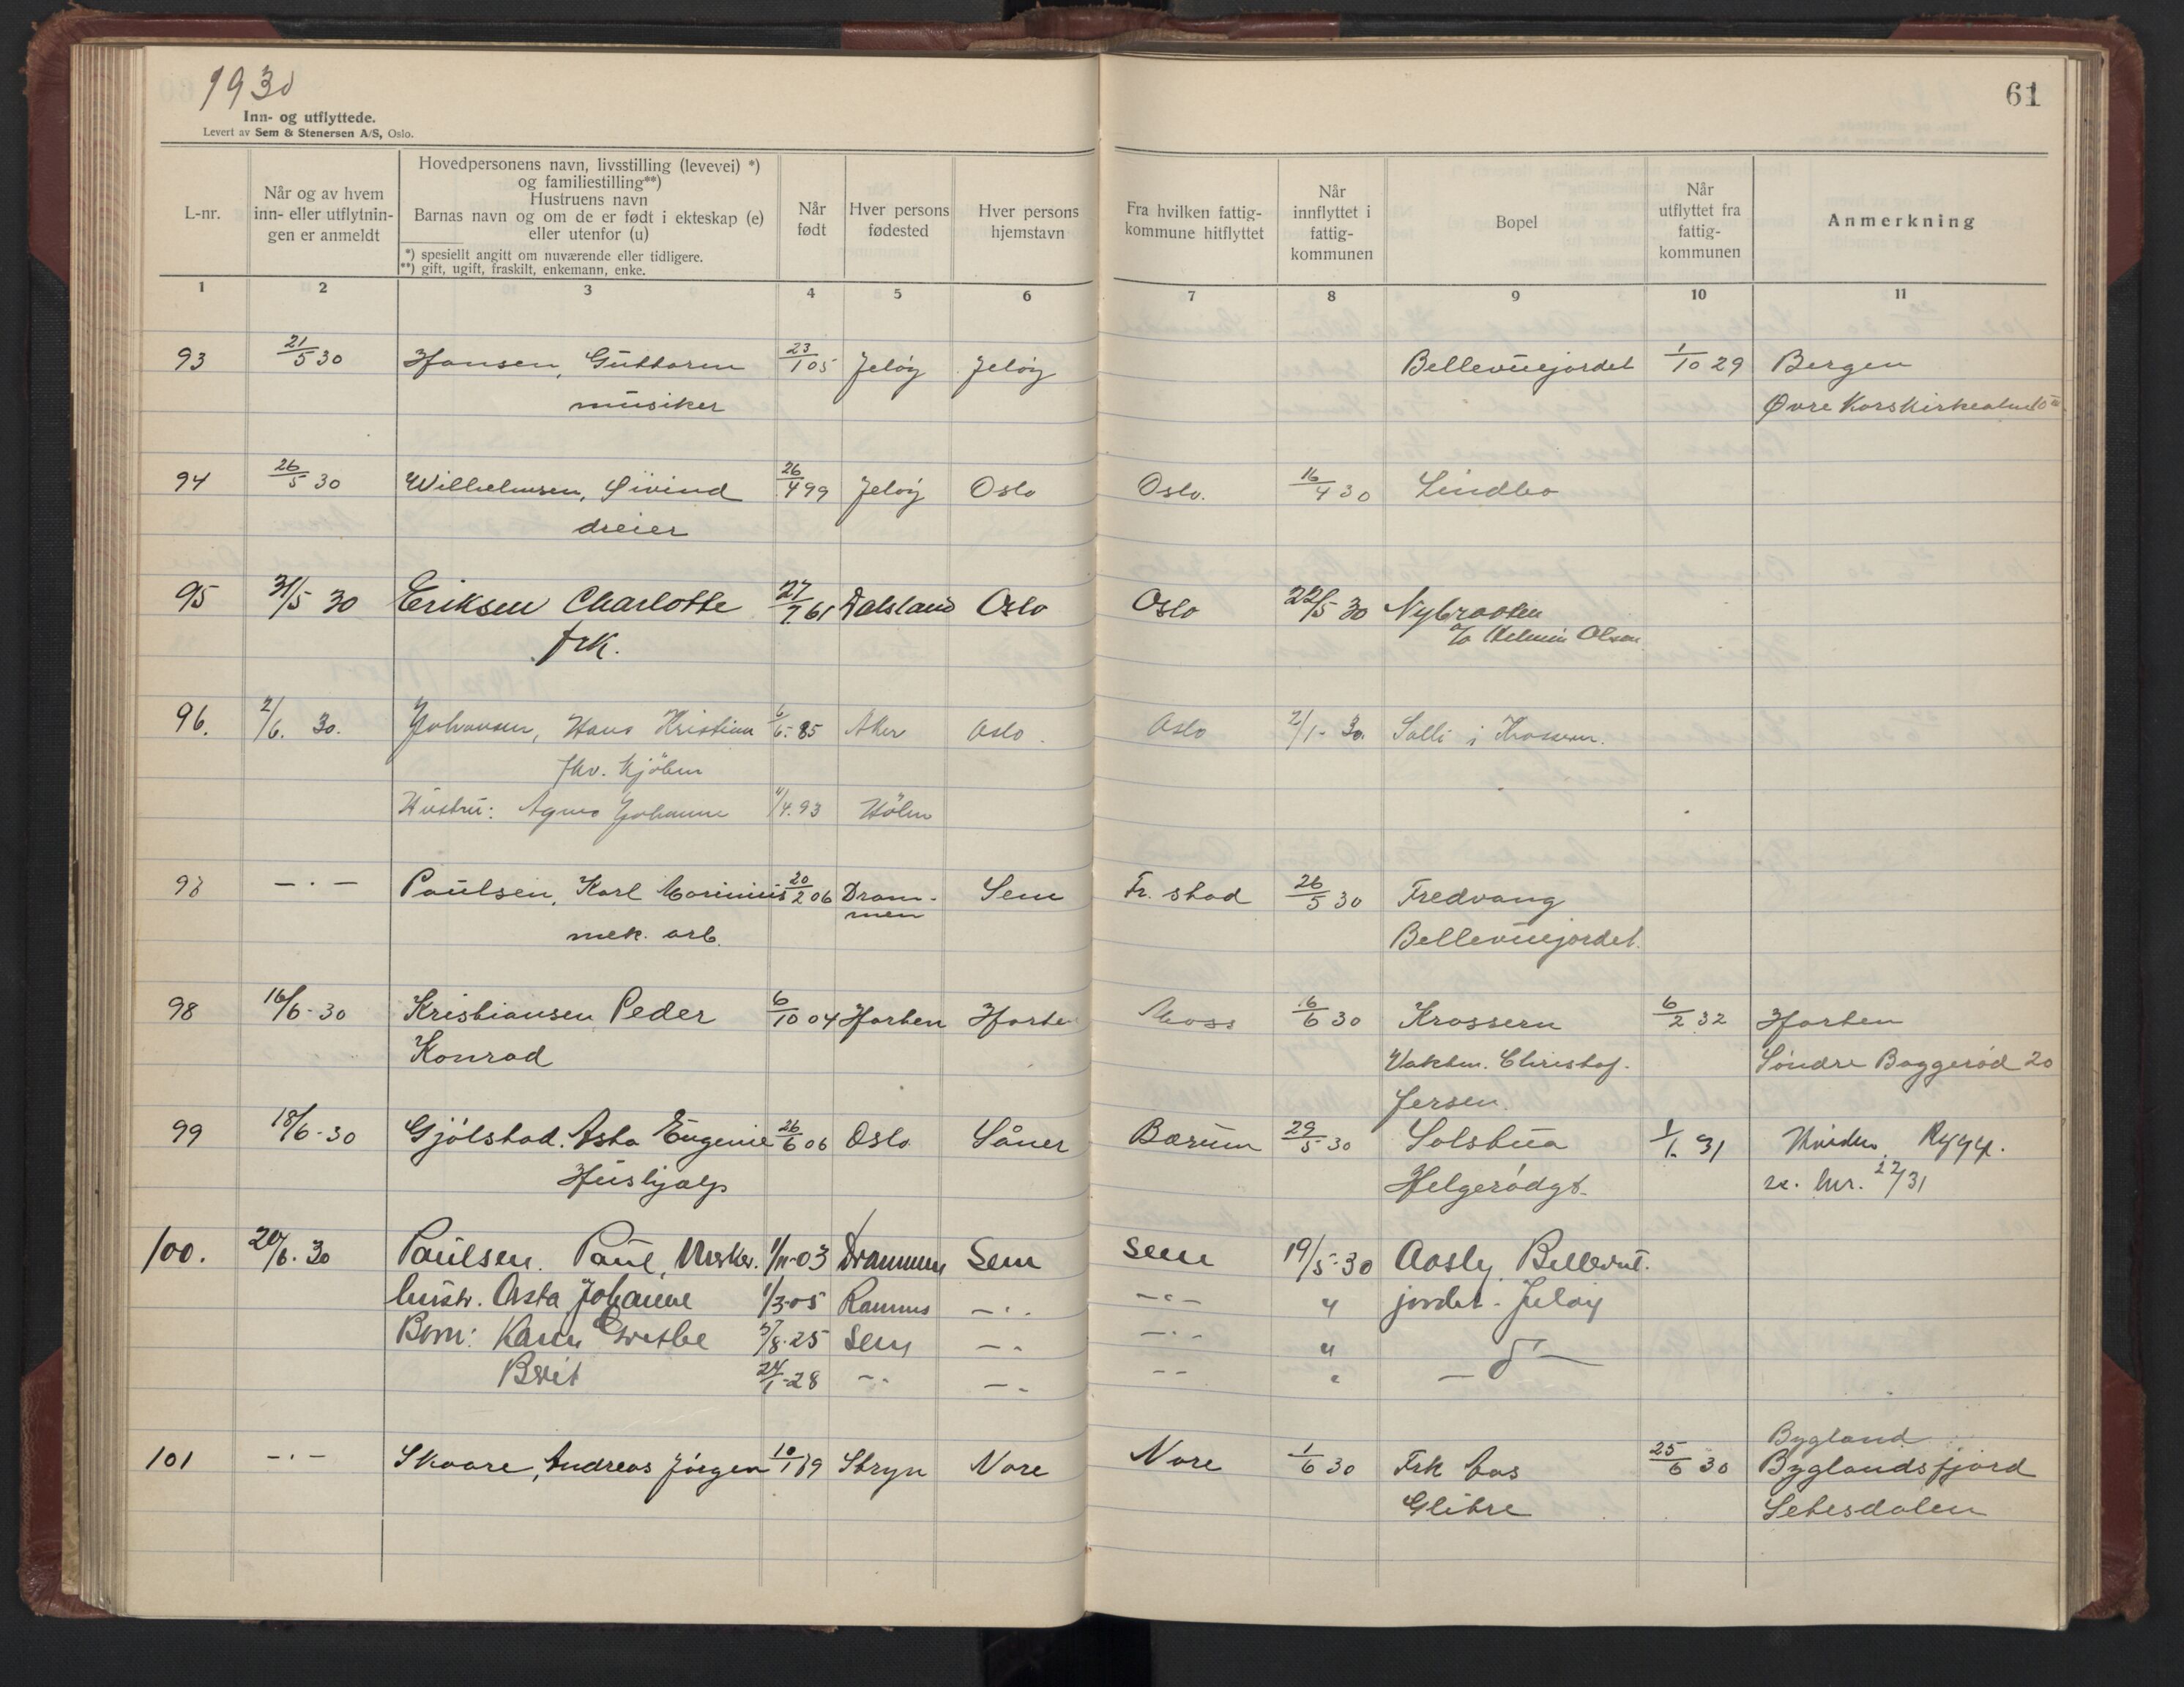 1930
Inn- og utflyttede.
Levert av Sem & Stenersen A/S, Oslo.
61
L-nr.
Når og av hvem inn- eller utflytnin-gen er anmeldt
Hovedpersonens navn, livsstilling (levevei) *)
og familiestilling**)
Hustruens navn
Barnas navn og om de er født i ekteskap (e)
eller utenfor (u)
*) spesiellt angitt om nuværende eller tidligere.
**) gift, ugift, fraskilt, enkemann, enke.
Når født
Hver persons fødested
Hver persons hjemstavn
Fra hvilken fattig-kommune hitflyttet
Når innflyttet i fattig-kommunen
Bopel
Når utflyttet fra fattig-kommunen
Anmerkning
1 2 3 4 5 6 7 8 9 10 11
93 21/5 30 Hansen, Guttorm 23/1 05 Jeløy Jeløy Bellevuejordet 1/10 29 Bergen
musiker Øvre Korskirkealm
94 26/5 30 Wilhelmsen, Øivind 26/4 99 Jeløy Oslo Oslo. 16/4 30 Lindbo
dreier
95 31/5 30 Eriksen Charlotte 27/7 61 Dalsland Oslo Oslo 22/5 30 Nybraaten
frk. c/o Helmin Olsen
96. 2/6. 30. Johansen, Hans Kristian 6/6-85 Aker Oslo Oslo 2/1-30. Solli i Krossern.
fhv. kjøbm
Hustru: Agnes Johanne 4.93 Hölen
97 -"- Paulsen, Karl Marinius 20/2 06 Drammen Sem Fr. stad 26/5 30 Fredvang
mek. arb. Bellevuejordet.
98 16/6-30 Kristiansen Peder 6/10 04 Horten Horten Moss 16/6 30 Krossern 6/2 32 Horten
Konrad Vaktm. Christof. Søndre Baggerød 20
Jersen.
99 18/6-30 Gjølstad. Asta Eugenie 26/6 06 Oslo Såner Bærum 29/5 30 Solstua 1/1. 31 Rygge.
Hushjælp Helgerødgt.
100. 20/6. 30 Paulsen. Paul, 1/11-03 Drammen Sem Sem 19/5-30 Aasly, Bellevue.
hustr. Asta Johanne 1/3-05 Ramnes -"- -"- " jordet - Jeløy
Barn: Karen Grethe 8-25 Sem -"- -"- " - d -
Brit 24/1-28 -"- -"- -"- "
101 -"- Skaare, Andreas Jörgen 10/1 79 Stryn Nore Nore 1/6 30 Frk Aas 25/6 30 Bygland
Glitre Byglandsfjord
Setesdalen